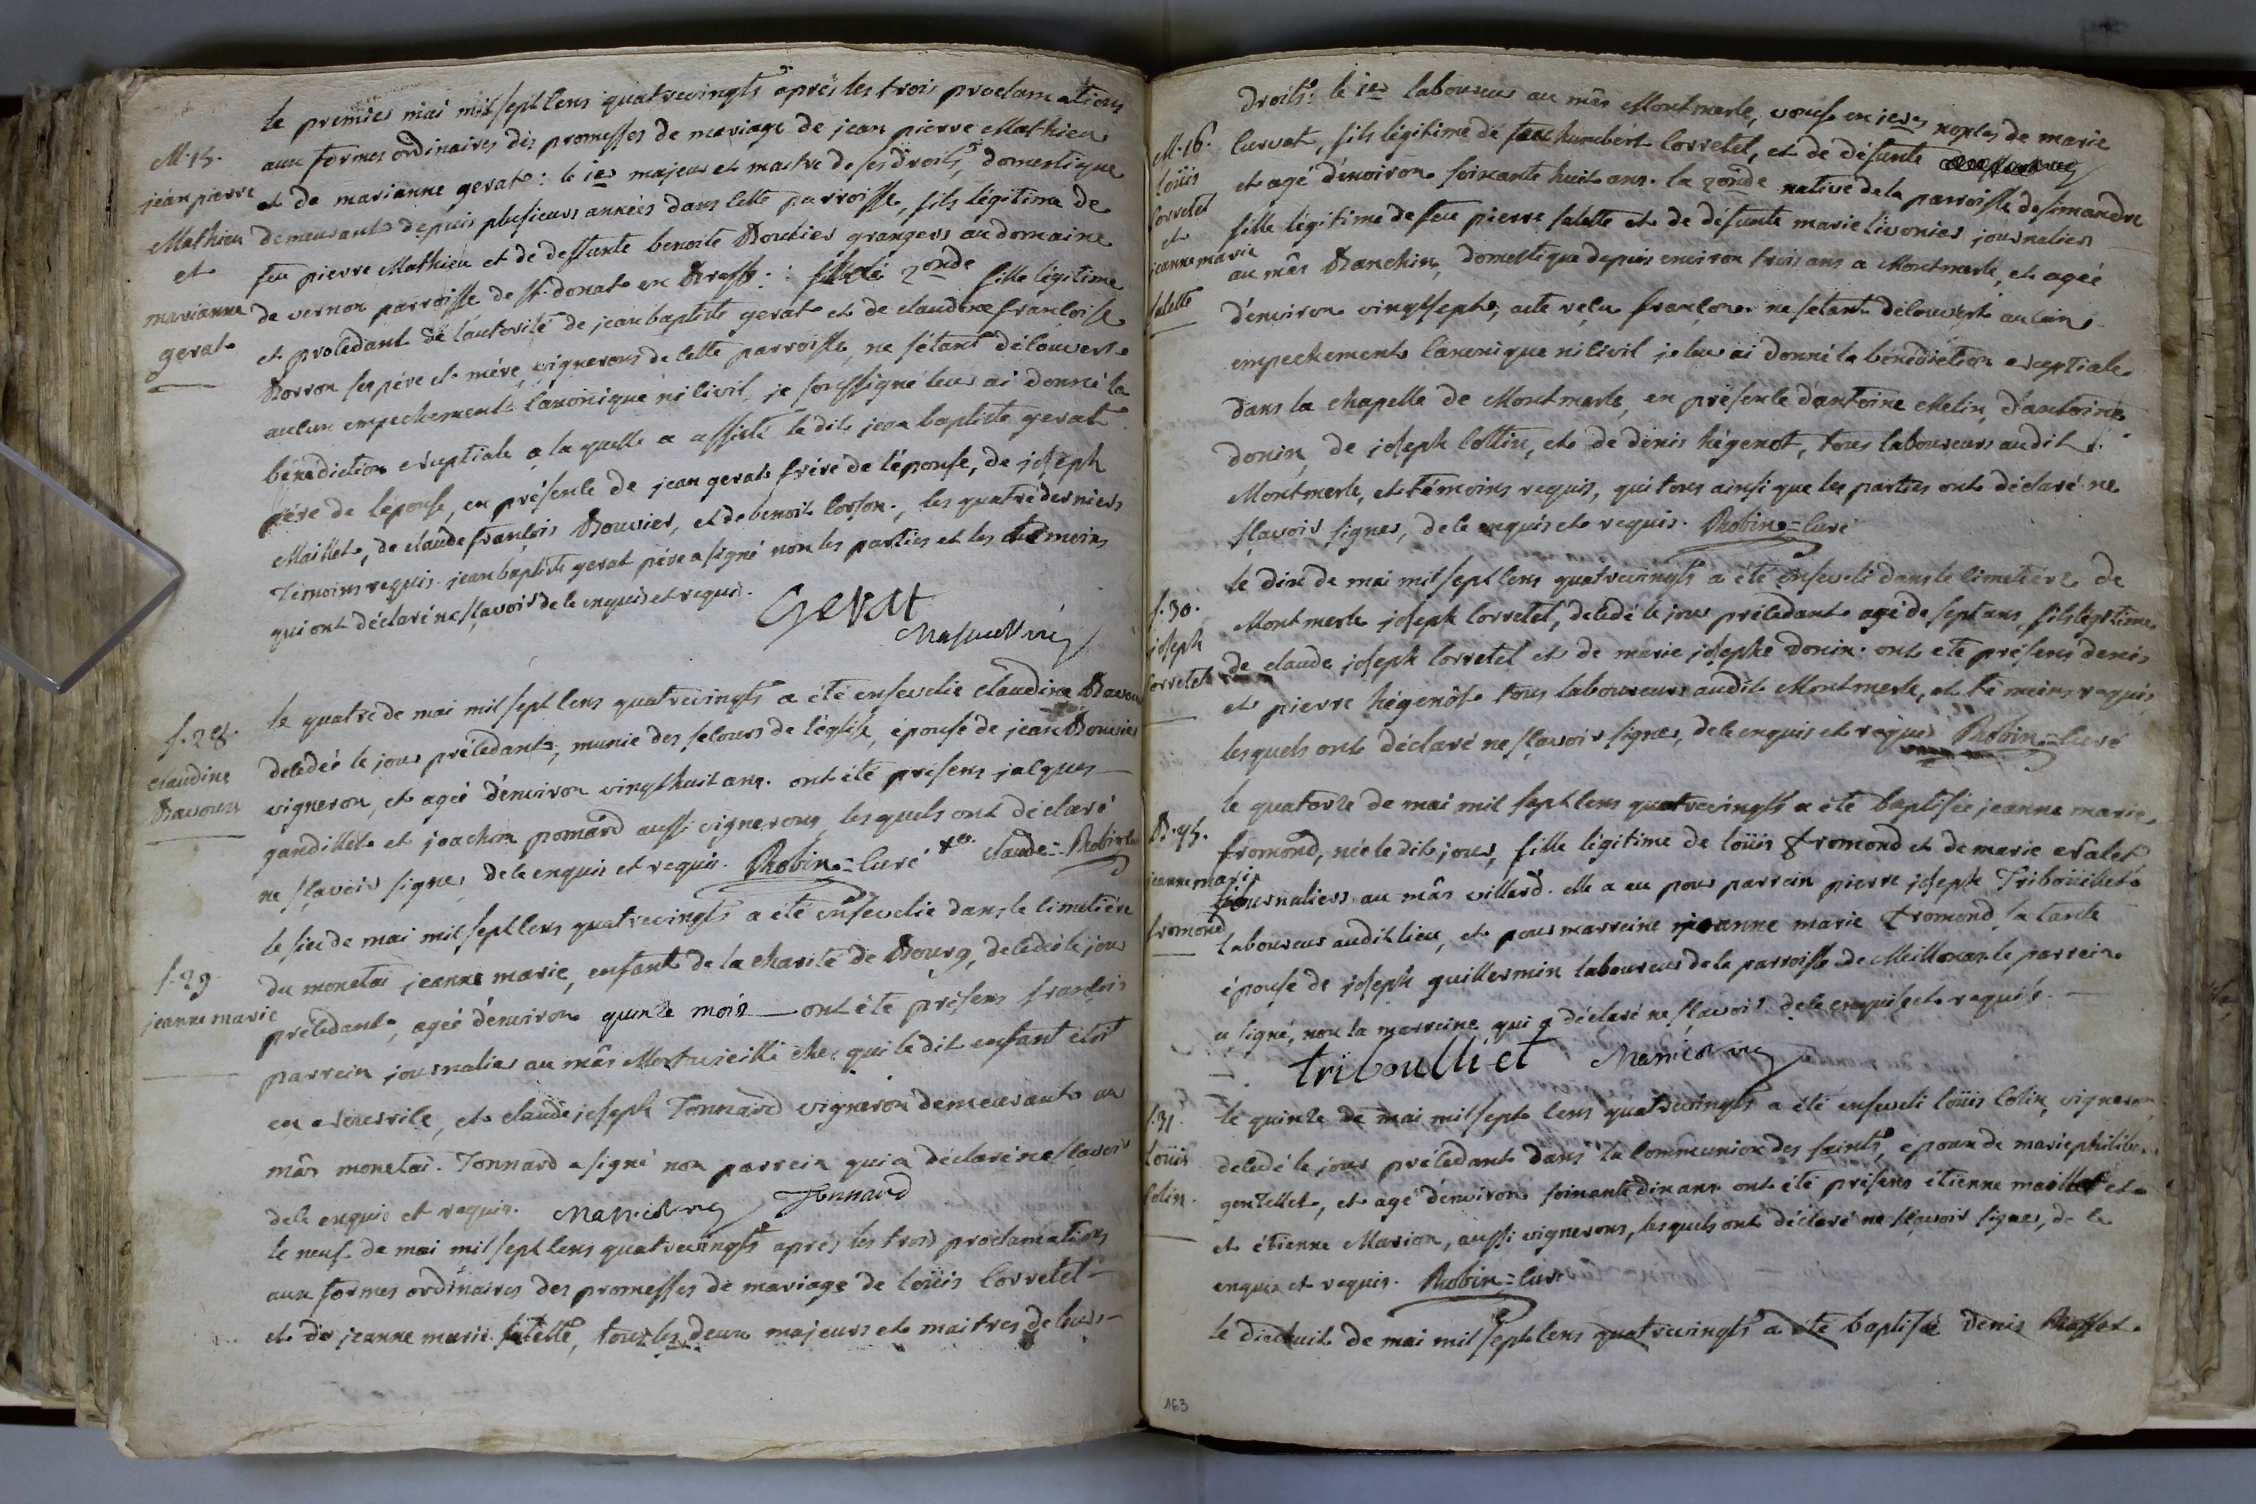 M. 15.
jean pierre
Mathieu
et
marianne
gerat
le premier mai mil sept cens quatrevingts après les trois proclamations
aux formes ordinaires des promesses de mariage de jean pierre Mathieu
et de marianne gerat : le 1er majeur et maitre de ses droits, domestique
demeurant depuis plusieurs années dans cette parroisse, fils légitime de
feu pierre Mathieu et de deffunte benoite Boutier grangers au domaine
de vernon parroisse de st. donat en Bresse : la 2onde fille légitime
et procédant de l'autorité de jean baptiste gerat et de claudine françoise
Borron ses père et mère, vignerons de cette parroisse, ne s'étant découvert
aucun empechement canonique ni civil, je soussigné leur ai donné la
bénédiction nuptiale a la quelle a assisté ledit jean baptiste gerat
père de l'épouse, en présence de jean gerat frère de l'épouse, de joseph
Maillet, de claude françois Bouvier, et de benoit corson, les quatre derniers
Témoins requis. jean baptiste gerat père a signé non les parties et les témoins
qui ont déclaré ne sçavoir de ce enquis et requis.
Gerat
S. 28.
claudine
le quatre de mai mil sept cens quatrevingts a été ensevelie claudine
decedée le jour précedant, munie des secours de l'église, épouse de jean Bouvier
vigneron, et agée d'environ vingt huit ans. ont été présens jacques
gandillet et joachim pomard aussi vignerons lesquels ont déclaré
ne sçavoir signer de ce enquis et requis. Robin = curé claude = Robin
S. 29
jeanne marie
le six de mai mil sept cens quatrevingts a été ensevelie dans le cimetière
du monetai jeanne marie, enfant de la charité de Bourg, decedée le jour
précedant, agée d'environ quinze mois — ont été présens françois
parrein journalier au mâs Montvieille chez qui ledit enfant étoit
en nourrice, et claude joseph Tonnard vigneron demeurant au
mâs monetai. Tonnard a signé non parrein qui a déclaré ne sçavoir
de ce enquis et requis. Tonnard
le neuf de mai mil sept cens quatrevingts après les trois proclamations
aux formes ordinaires des promesses de mariage de loüis Corretel
et de jeanne marie salette, tous les deux majeurs et maitres de leurs
M. 16.
loüis
Corretel
et
jeanne marie
salette
droits : le 1er laboureur au mâs Montmerle, veuf en 1eres noples de marie
curvat, fils légitime de feu humbert Corretel, et de défunte
et agé d'environ soixante huit ans. la 2onde native de la parroisse de simandre
fille légitime de feu pierre salette et de défunte marie livonier journaliers
au mâs Banchin, domestique depuis environ trois ans a Montmerle, et agée
d'environ vingt sept, ne s'étant découvert aucun
empechement canonique ni civil je leur ai donné la bénédiction nuptiale
dans la chapelle de Montmerle, en présence d'antoine Melin, d'antoine
donin, de joseph Cottin, et de denis hégenot, tous laboureurs audit
Montmerle, et témoins requis, qui tous ainsi que les parties ont déclaré ne
sçavoir signer, de ce enquis et requis. Robin = curé
S. 30.
joseph
Corretel
le dix de mai mil sept cens quatrevingts a été enseveli dans le cimetière de
Montmerle joseph Corretel, decedé le jour précedant agé de sept ans, fils légitime
de claude joseph Corretel et de marie josephe donin. ont été présens denis
et pierre hégenot tous laboureurs audit Montmerle, et témoins requis,
lesquels ont déclaré ne sçavoir signer, de ce enquis et requis Robin = curé
B. 45.
jeanne marie
fromond
le quatorze de mai mil sept cens quatrevingts a été baptisée jeanne marie
fromond, née le dit jour, fille légitime de loüis fromond et de marie nalet
journaliers au mâs villard. elle a eu pour parrein pierre joseph Triboüillet
laboureur audit lieu, et pour marreine jeanne marie fromond, sa tante
épouse de joseph guillermin laboureur de la parroisse de Meillonas. le parrein
a signé, non la marreine qui a déclaré ne sçavoir de ce enquise et requise.
triboulliet
S. 31.
loüis
Colin.
le quinze de mai mil sept cens quatrevingts a été enseveli loüis Colin, vigneron
decedé le jour précedant dans la communion des saints, epoux de marie
gentellet, et agé d'environ soixante dix ans. ont été présens étienne maillet et
et étienne Marion, aussi vignerons, lesquels ont déclaré ne sçavoir signer, de ce
enquis et requis. Robin = curé
le dixhuit de mai mil sept cens quatrevingts a été baptisé denis
163